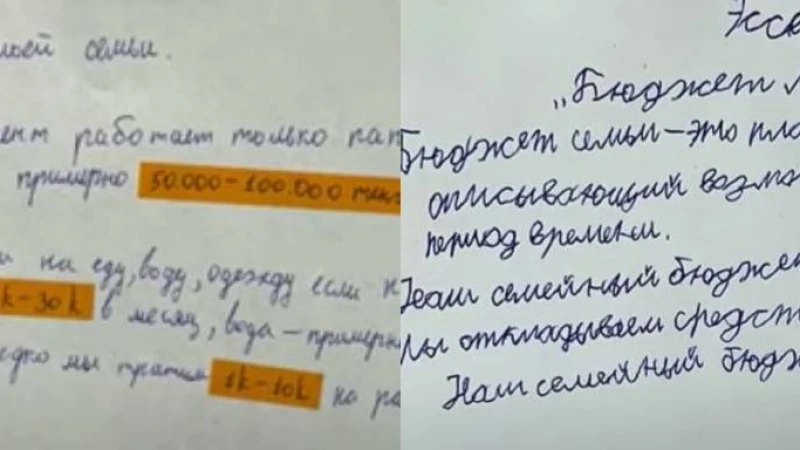 моей семьи.
мент работает только пап
примерно 50.000-100.000 тенг
и на еду, воду, одежду если н
k-30k в месяц, вода - примерно
редко мы тратим 1k-10k на ра
Эссе
„Бюджет м
Бюджет семьи - это пла
описывающий возмо
период времени.
Наш семейный бюджет
Мы откладываем средст
Наш семейный бюдж